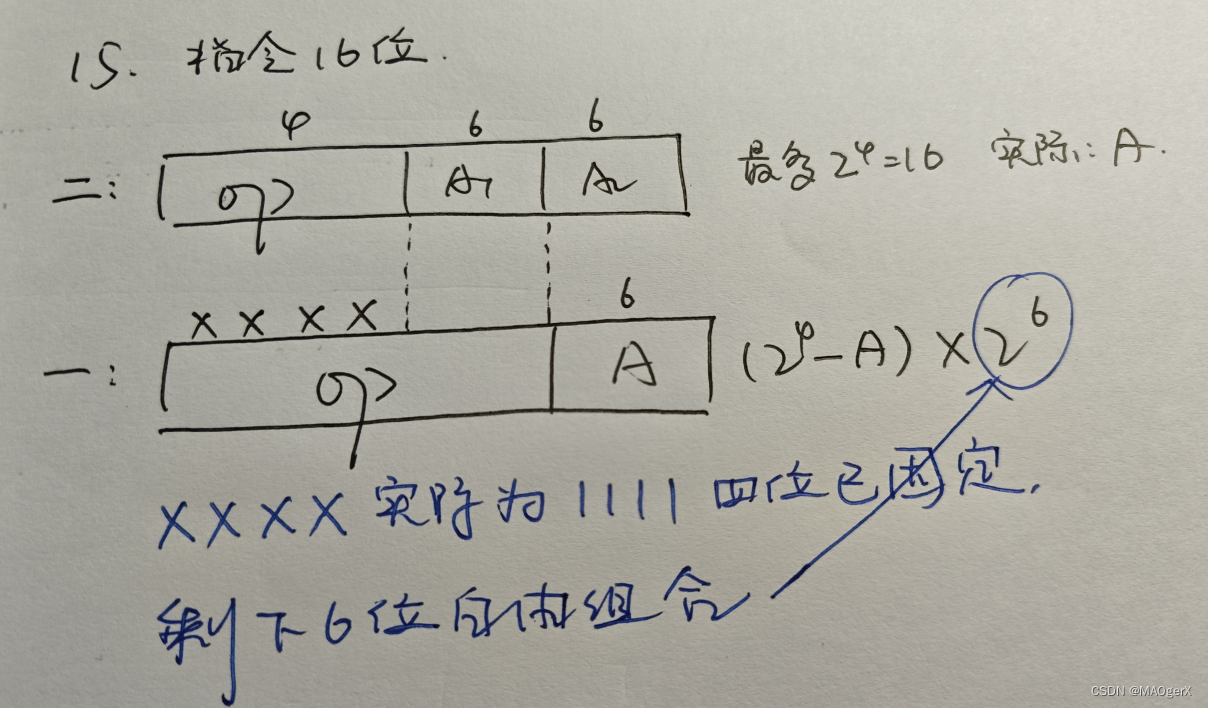 15. 指令16位.
4 6 6
二: op A₁ A₂ 最多2⁴=16 实际: A.
X X X X 6
一: op A (2⁴-A) × 2⁶
XXXX 实际为 1111 四位已固定.
剩下6位自由组合
CSDN @MAOgerX